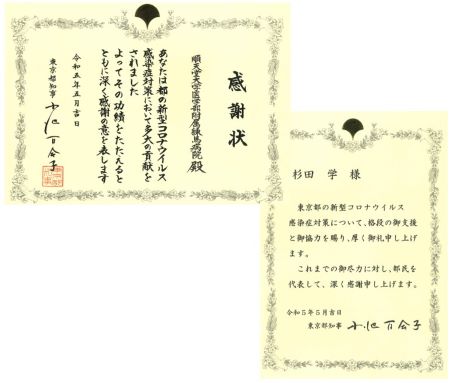 感謝状
順天堂大学医学部附属練馬病院 殿
あなたは都の新型コロナウイルス
感染症対策において多大の貢献を
されました
よってその功績をたたえると
ともに深く感謝の意を表します
令和五年五月吉日
東京都知事 小池百合子
杉田 学 様
東京都の新型コロナウイルス
感染症対策について、格段の御支援
と御協力を賜り、厚く御礼申し上げ
ます。
これまでの御尽力に対し、都民を
代表して、深く感謝申し上げます。
令和5年5月吉日
東京都知事 小池百合子